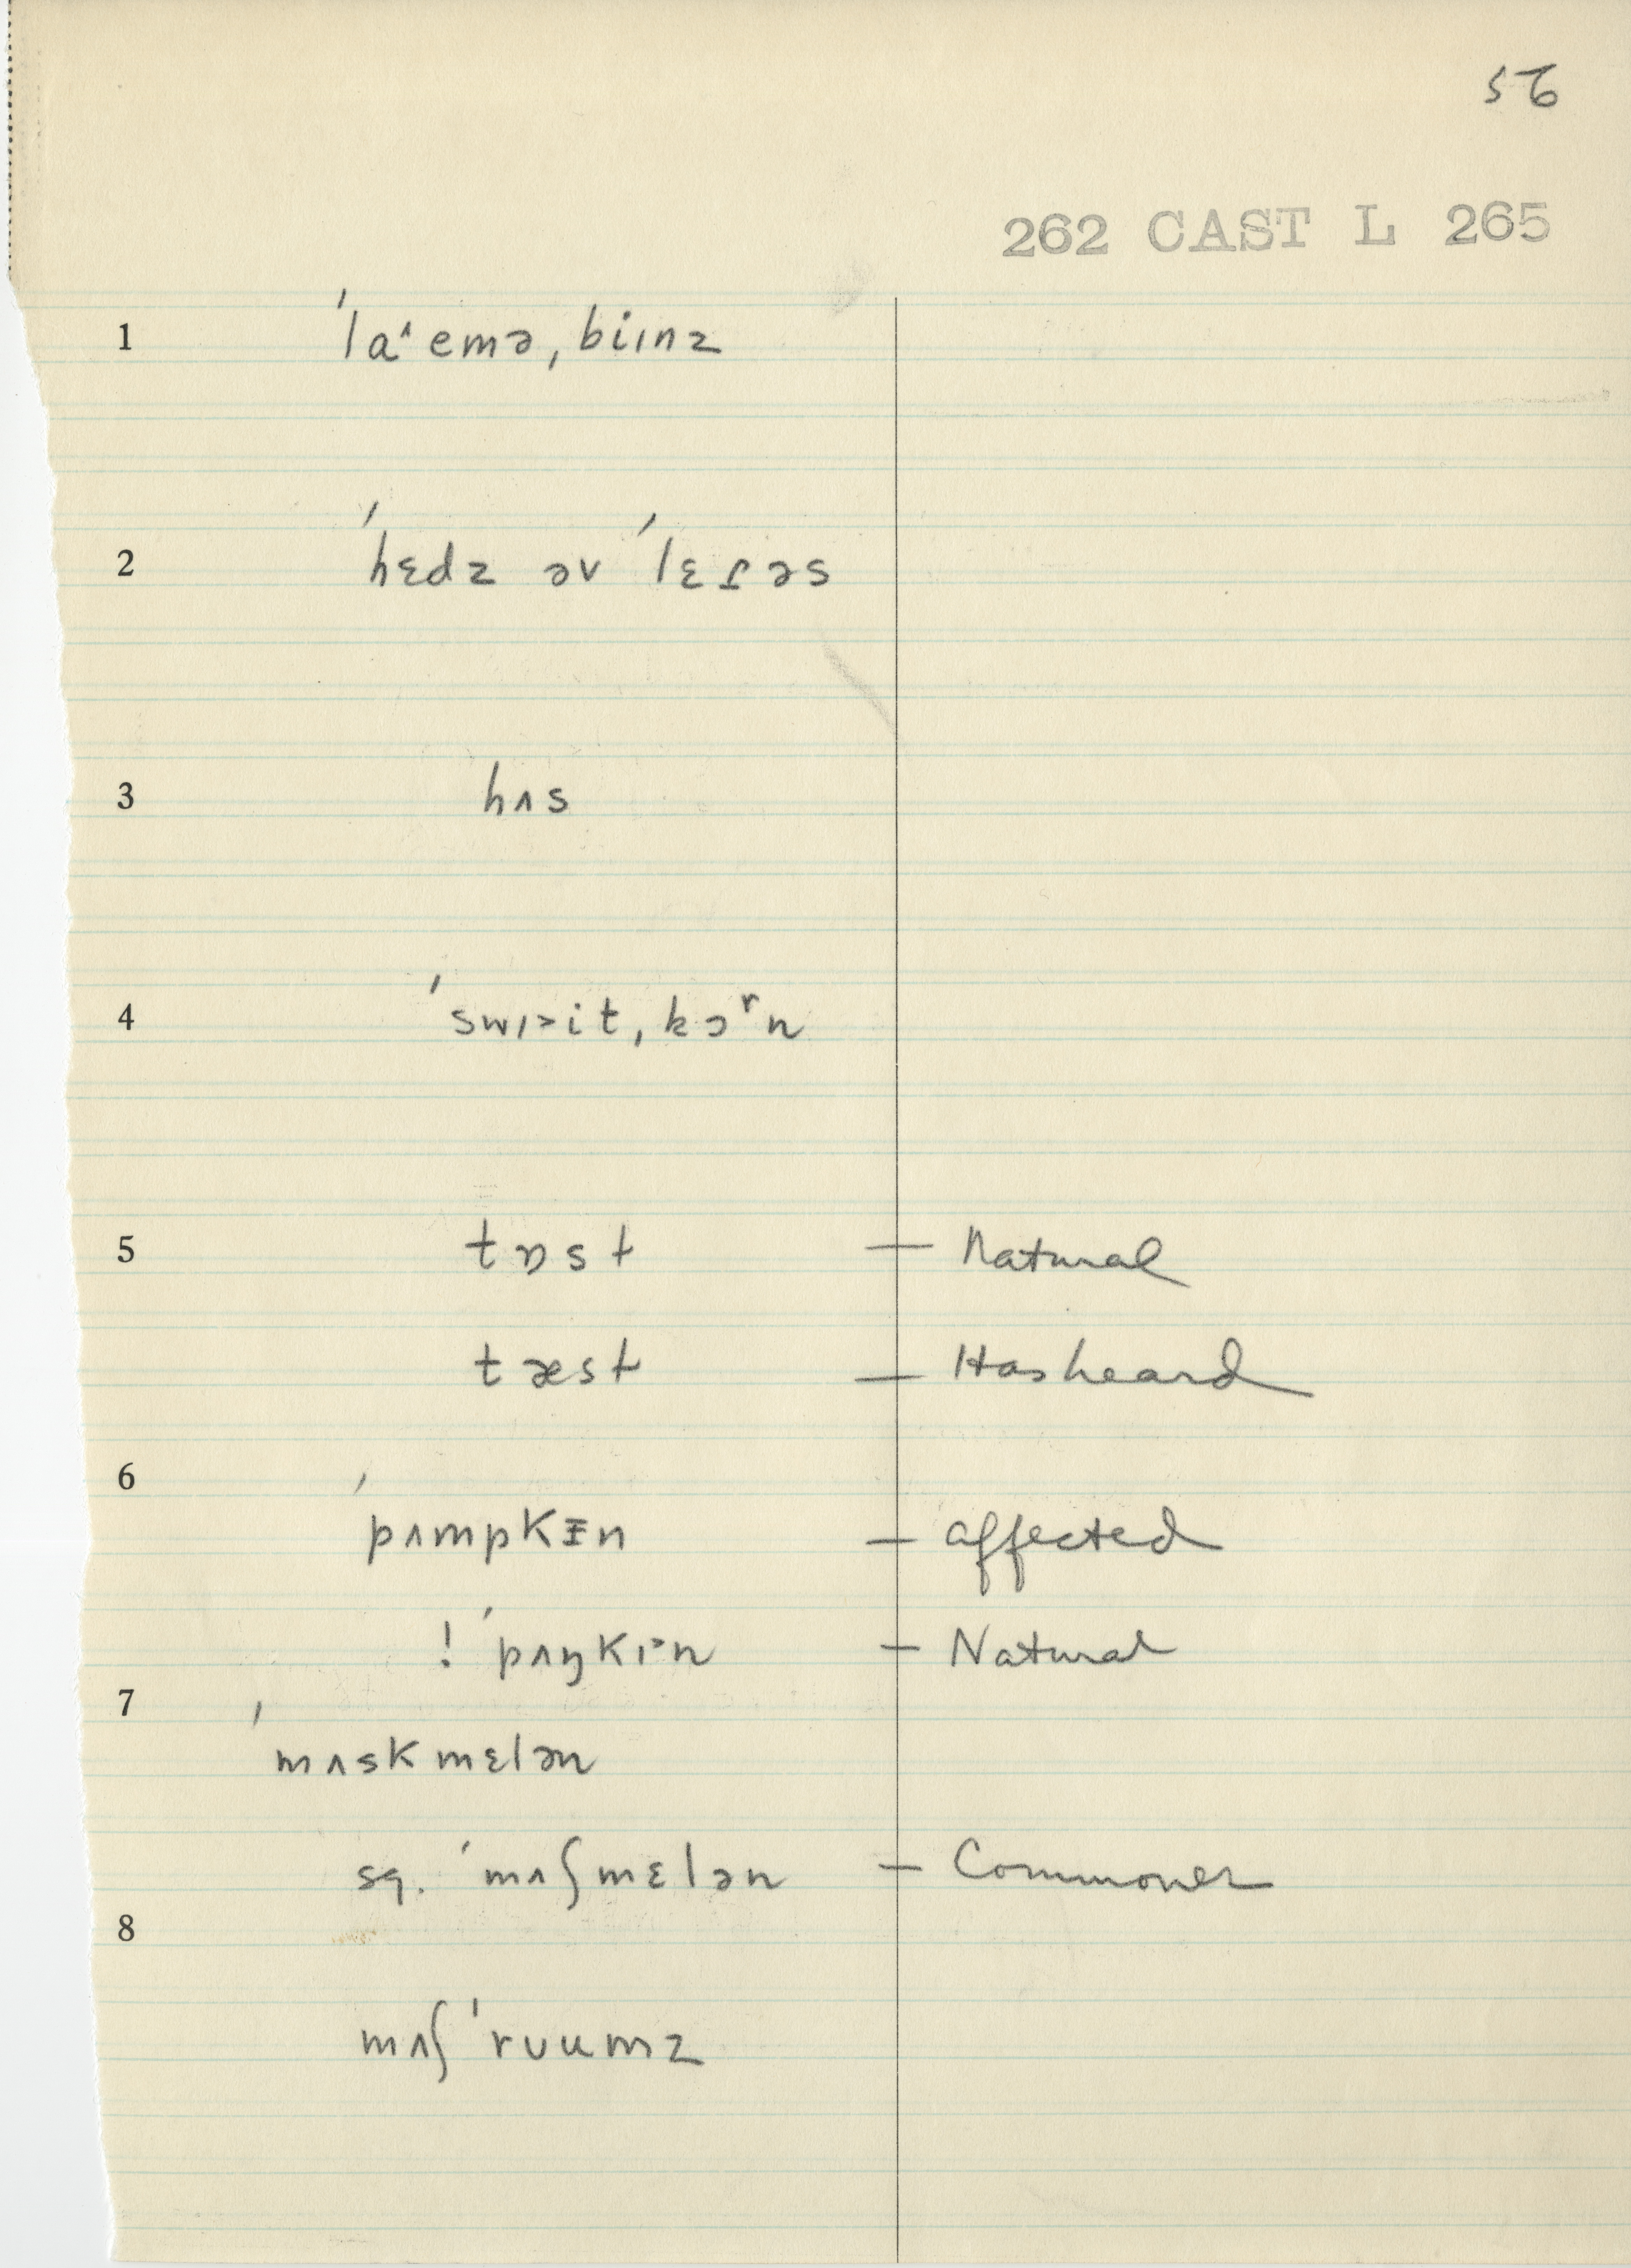 56
262 CAST L 265
1 ˈla˄emə, biɪnz
2 ˈhɛdz əv ˈlɛɾəs
3 hʌs
4 ˈswɪ>it, kɔʳn
5 tɒst — Natural
tæst — Has heard
6 ˈpʌmpkɪn — affected
! ˈpʌŋkɪ>n — Natural
7 ˈmʌskmɛlən
sq. ˈmʌʃmɛlən — Commoner
8 mʌʃˈrʊumz